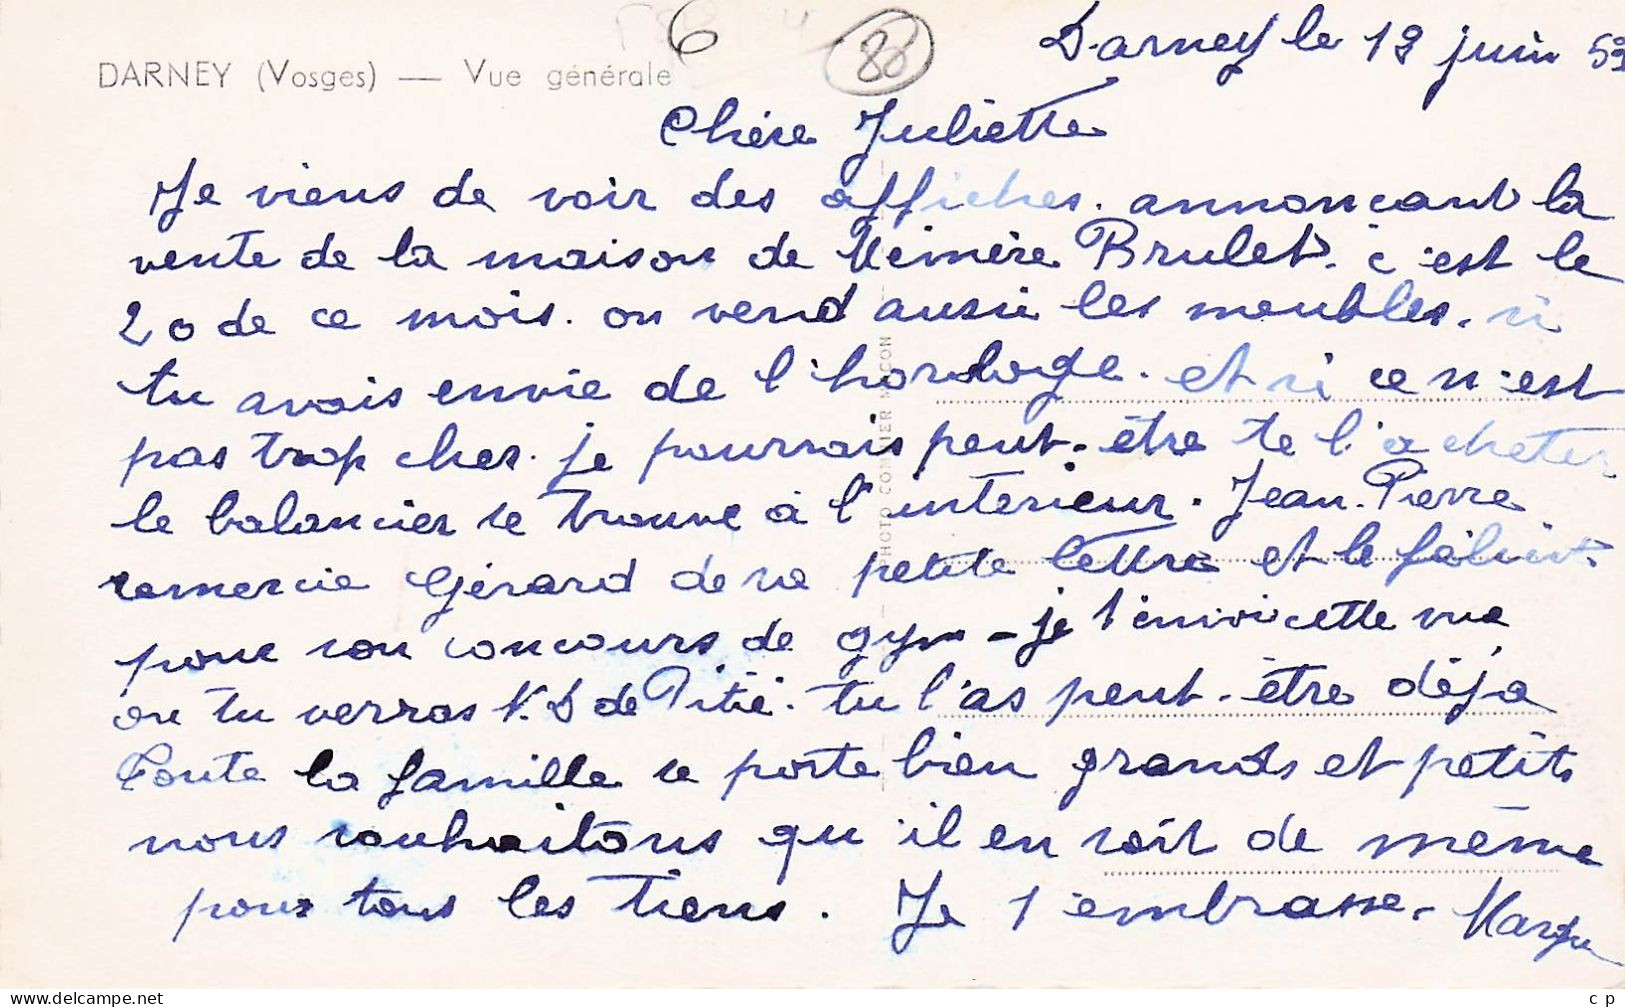 6
88
Darney le 19 juin 59
DARNEY (Vosges) — Vue générale
Chère Juliette
Je viens de voir des affiches. annonçant la
vente de la maison de Mémère Brulet. c'est le
20 de ce mois. on vend aussi les meubles. si
tu avais envie de l'horologe. et si ce n'est
pas trop cher. je pourrais peut-être te l'acheter
le balancier se trouve à l'intérieur. Jean-Pierre
remercie Gérard de sa petite lettre et le félicite
pour son concours de gym - je t'envoie cette vue
ou tu verras N.D de Pitié. tu l'as peut-être déjà
Toute la famille se porte bien grands et petits
nous souhaitons qu'il en soit de même
pour tous les tiens. Je t'embrasse.
PHOTO COMBIER MACON
www.delcampe.net
c p